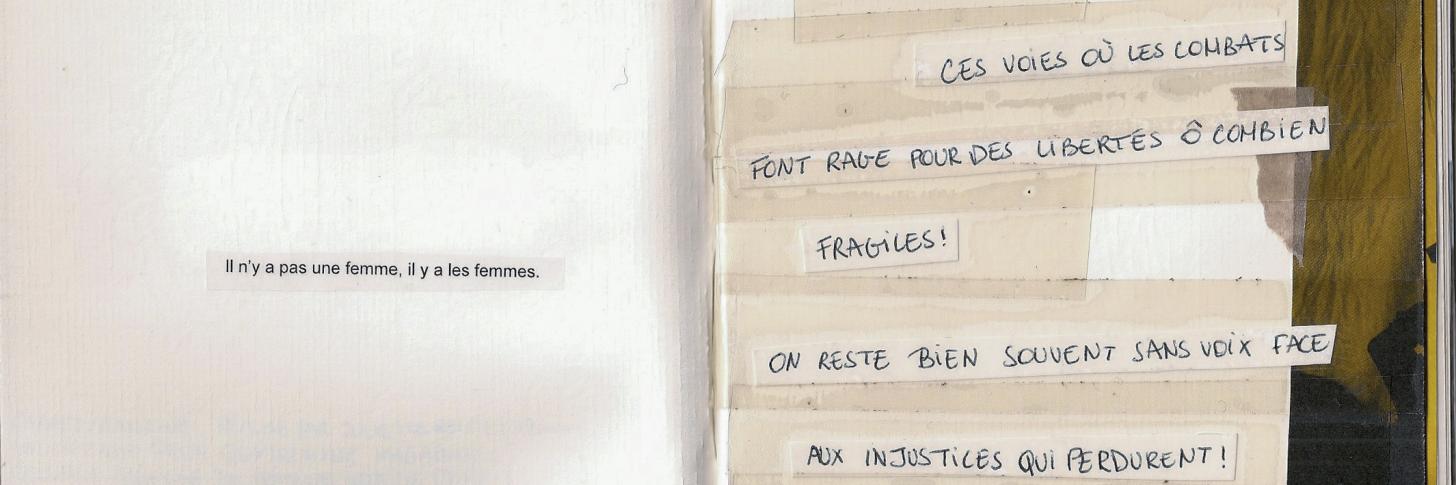 Il n'y a pas une femme, il y a les femmes.
CES VOIES OÙ LES COMBATS
FONT RAGE POUR DES LIBERTÉS Ô COMBIEN
FRAGILES!
ON RESTE BIEN SOUVENT SANS VOIX FACE
AUX INJUSTICES QUI PERDURENT!